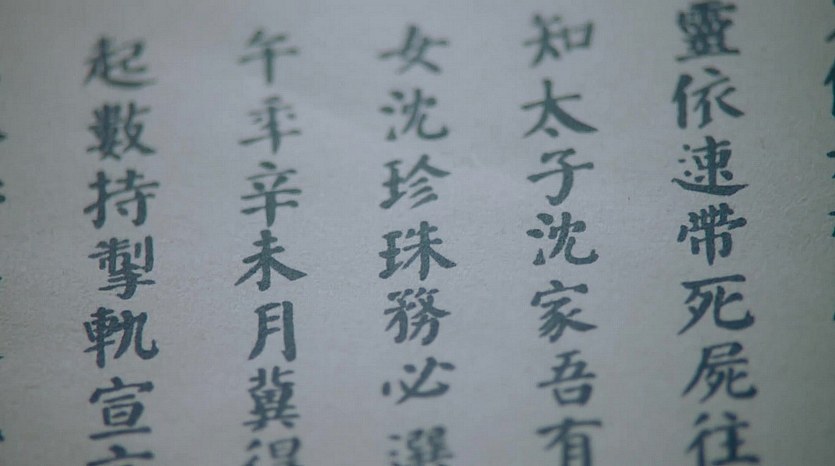 靈依速帶死屍往
知太子沈家吾有
女沈珍珠務必選
午年辛未月冀得
起數持掣軌宣